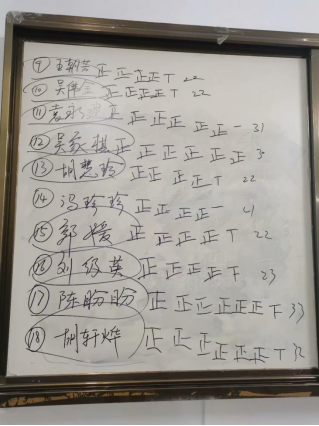 ⑨ 王朝芳 正正正正丅 22
⑩ 吴伟 正正正正丅 22
⑪ 袁 正正正正正正一 31
⑫ 吴 棋 正正正正正正 3
⑬ 胡慧玲 正正正正丅 22
⑭ 冯珍珍 正正正正一 21
⑮ 郭媛 正正正正丅 22
⑯ 刘 英 正正正正下 23
⑰ 陈盼盼 正正正正正正下 33
⑱ 胡轩烨 正正正正正正丅 32